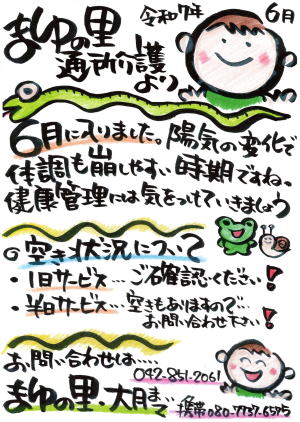 令和7年 6月
まゆの里
通所介護
より
6月に入りました。陽気の変化で
体調も崩しやすい時期ですね。
健康管理には気をつけていきましょう
○空き状況について
・1日サービス…ご確認ください!
・半日サービス…空きもありますので
お問い合わせ下さい!
お問い合わせは……
042-851-2061
まゆの里・大月まで
携帯080-7737-6575